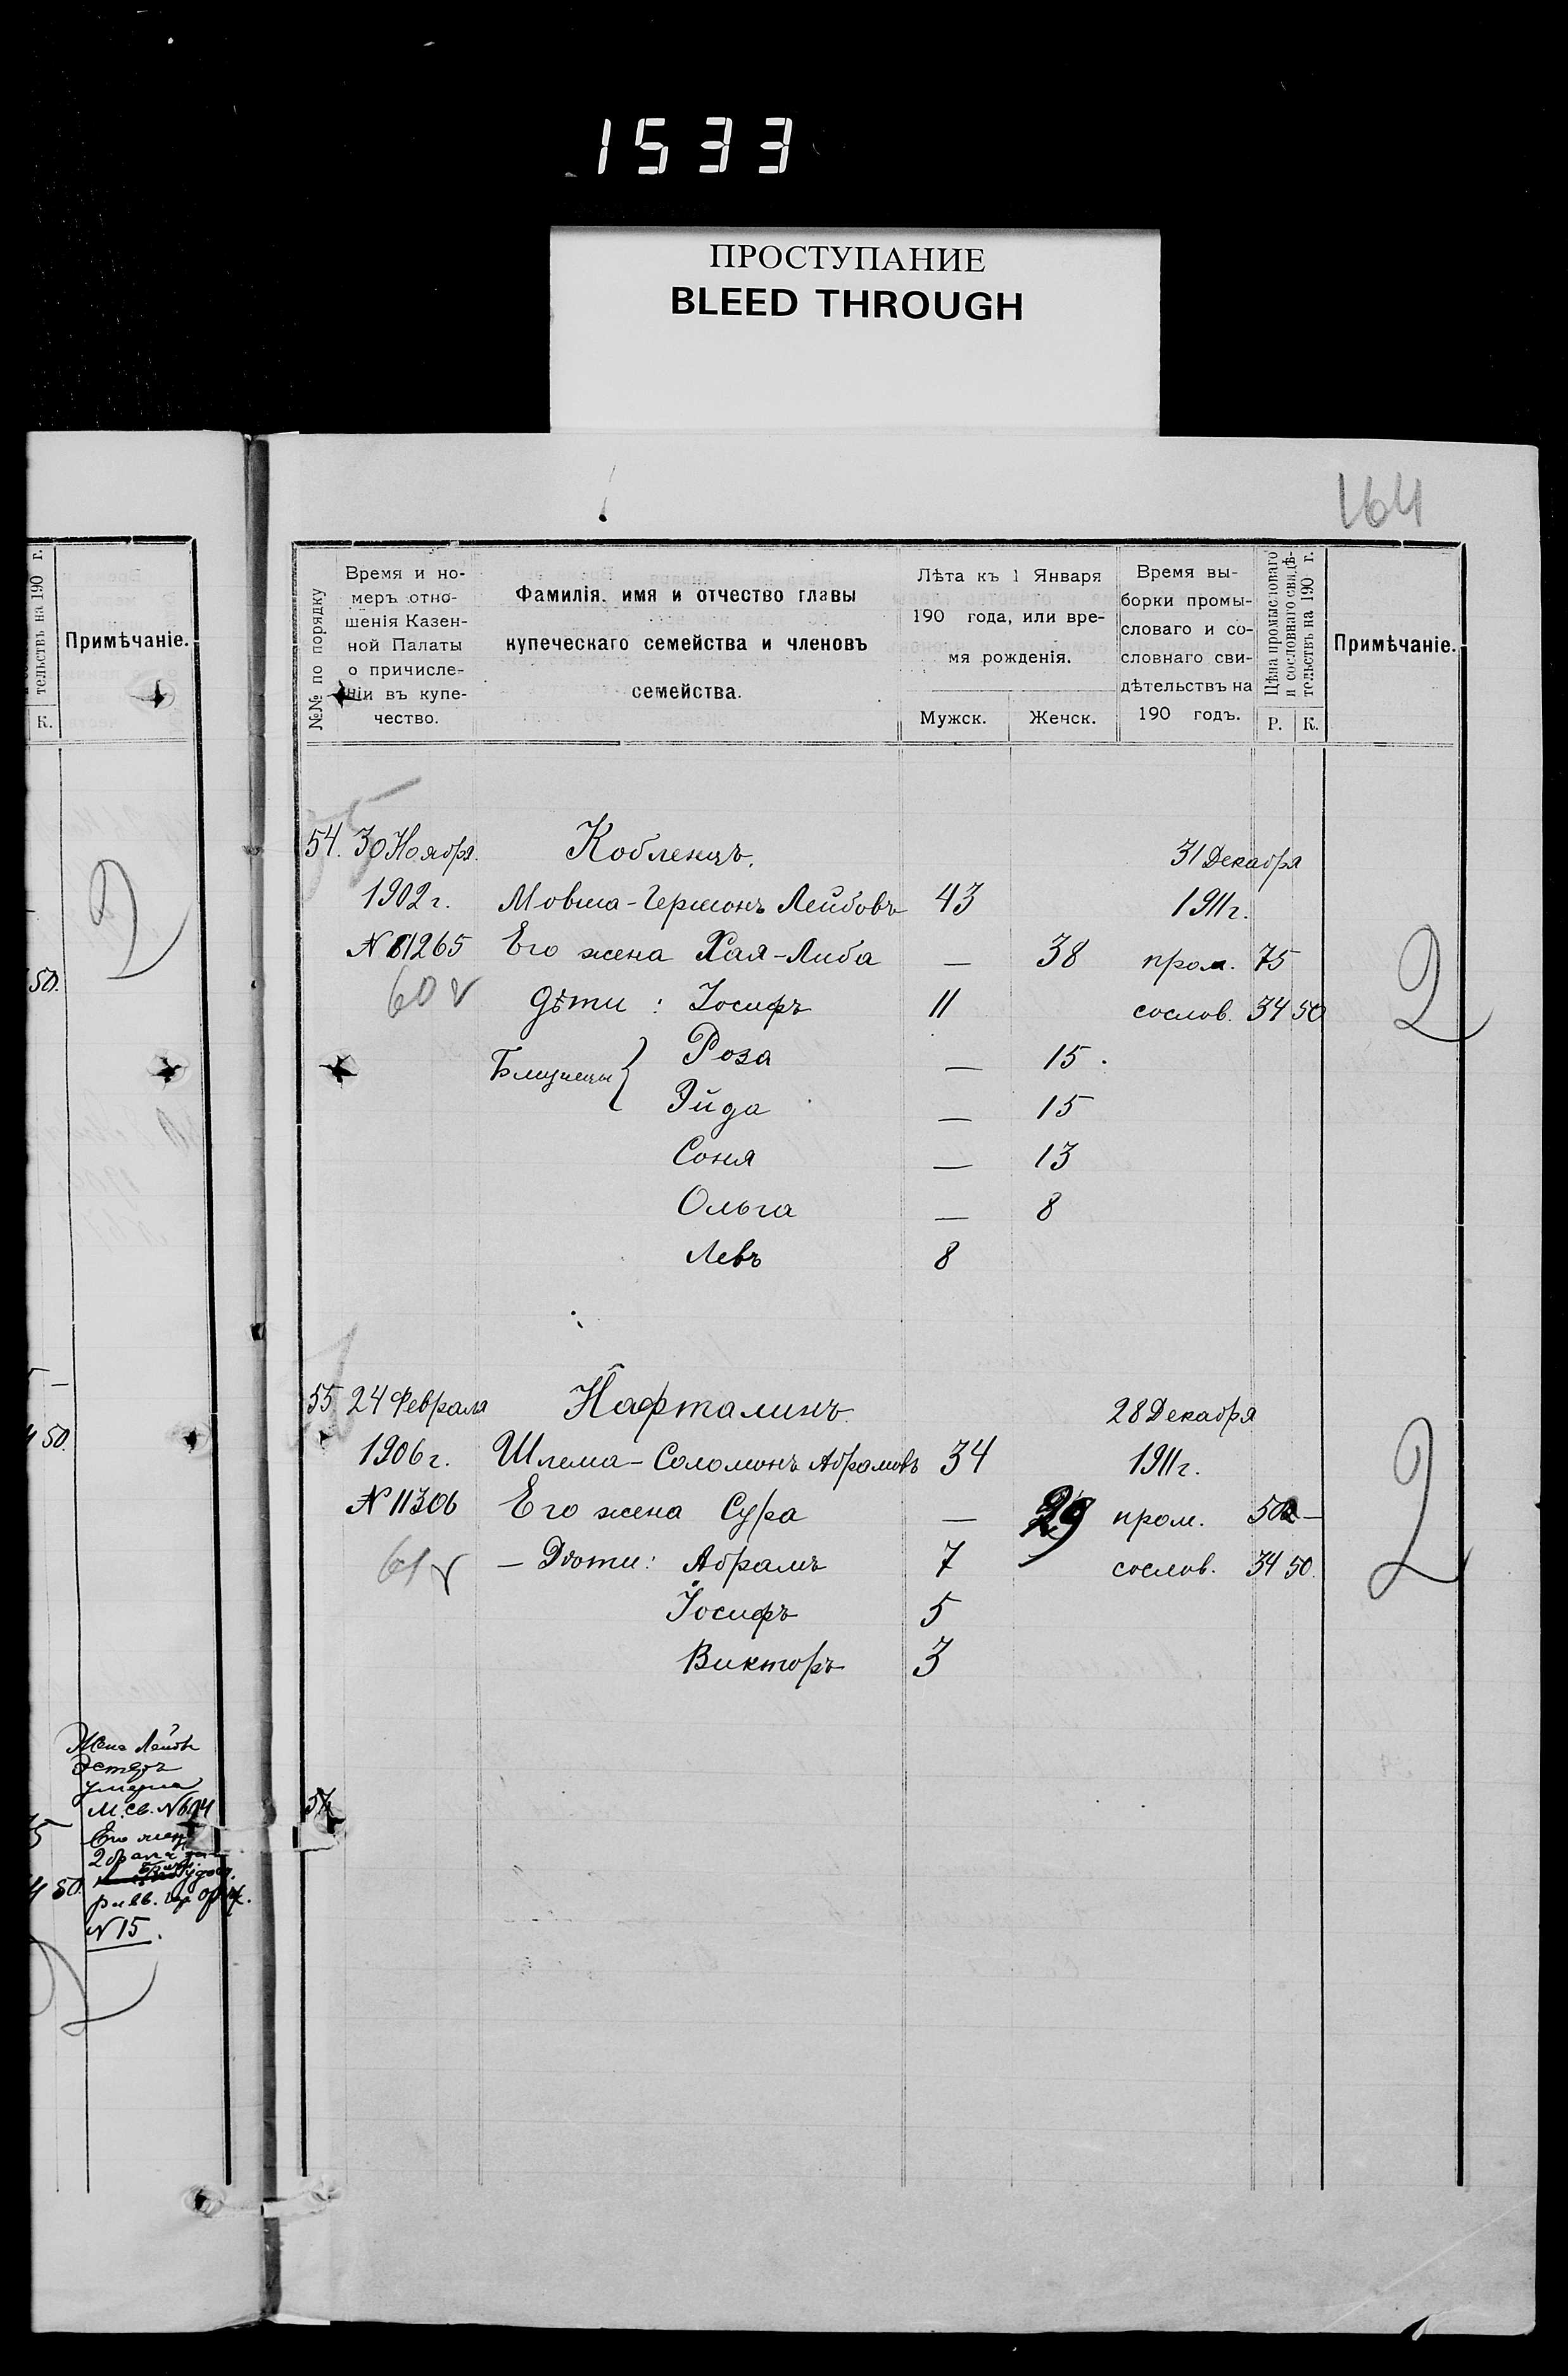 1533
ПРОСТУПАНИЕ
BLEED THROUGH
164
тельствъ на 190 г.
К.
Примѣчаніе.
50.
50.
Эстеръ
умерла
М. св. № 614
50.
№ 15.
№№ по порядку
Время и но-
меръ отно-
шенія Казен-
ной Палаты
о причисле-
ніи въ купе-
чество.
Фамилія, имя и отчество главы
купеческаго семейства и членовъ
семейства.
Лѣта къ 1 Января
190 года, или вре-
мя рожденія.
Мужск. Женск.
Время вы-
борки промы-
словаго и со-
словнаго сви-
дѣтельствъ на
190 годъ.
Цѣна промысловаго
и сословнаго свидѣ-
тельствъ на 190 г.
Р. К.
Примѣчаніе.
54. 30 Ноября. Кобленцъ. 31 Декабря
1902 г. Мовша-Гермонъ Лейбовъ 43 1911 г.
№ 81265 Его жена Хая-Либа — 38 пром. 75
60 v Дѣти: Іосифъ 11 сослов. 34 50 2
Близнецы { Роза — 15.
Эйда — 15
Соня — 13
Ольга — 8
Левъ 8
55 24 Февраля Нафталинъ. 28 Декабря
1906 г. Шлема-Соломонъ Абрамовъ 34 1911 г.
№ 11306 Его жена Сура — 29 пром. 50 —
61 v — Дѣти: Абрамъ 7 сослов. 34 50. 2
Іосифъ 5
Викторъ 3